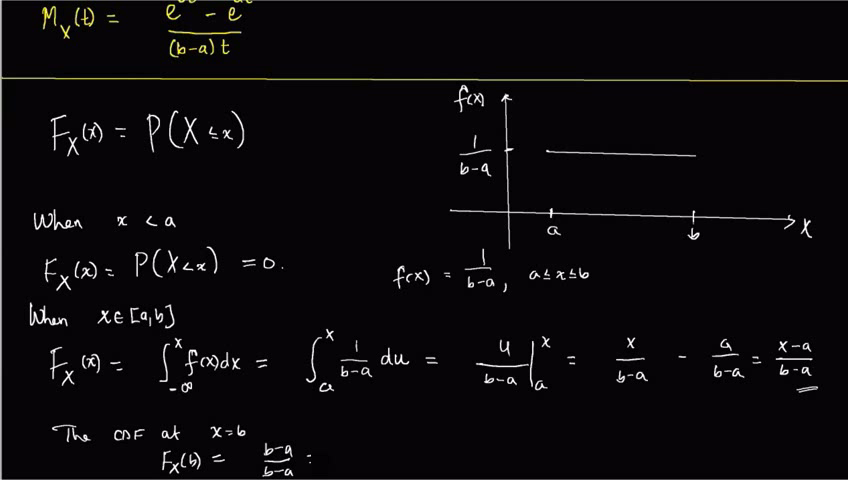 M_X(t) = (e^ - e^) / (b-a)t
F_X(x) = P(X ≤ x)
f(x)
1/(b-a)
a
b
x
When x < a
F_X(x) = P(X < x) = 0.
f(x) = 1/(b-a), a ≤ x ≤ b
When x ∈ [a,b]
F_X(x) = ∫_{-∞}^{x} f(x)dx = ∫_a^x 1/(b-a) du = u/(b-a) |_a^x = x/(b-a) - a/(b-a) = (x-a)/(b-a)
The CDF at x=b
F_X(b) = (b-a)/(b-a) =